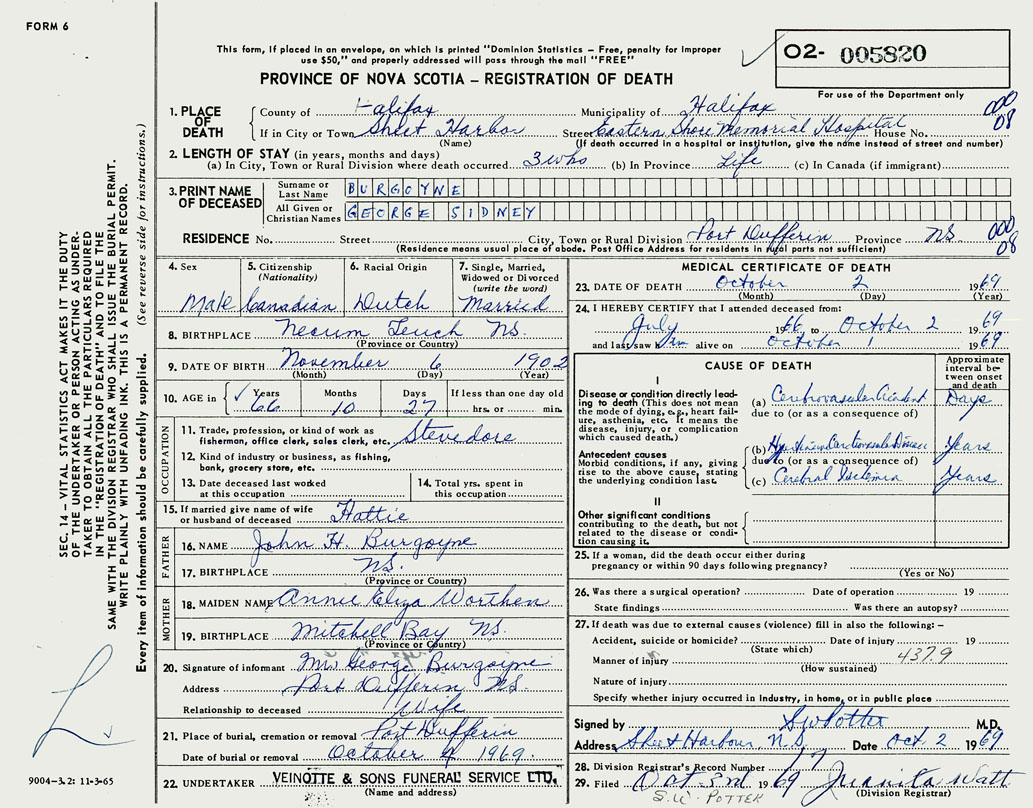 FORM 6
This form, if placed in an envelope, on which is printed "Dominion Statistics – Free, penalty for improper
use $50," and properly addressed will pass through the mail "FREE"
PROVINCE OF NOVA SCOTIA – REGISTRATION OF DEATH
O2- 005820
For use of the Department only
1. PLACE OF DEATH
County of Halifax Municipality of Halifax 000
If in City or Town Sheet Harbor Street Eastern Shore Memorial Hospital House No. 08
(Name) (If death occurred in a hospital or institution, give the name instead of street and number)
2. LENGTH OF STAY (in years, months and days)
(a) In City, Town or Rural Division where death occurred 3 wks (b) In Province Life (c) In Canada (if immigrant)
3. PRINT NAME OF DECEASED
Surname or Last Name BURGOYNE
All Given or Christian Names GEORGE SIDNEY
RESIDENCE No. Street City, Town or Rural Division Port Dufferin Province NS. 000
(Residence means usual place of abode. Post Office Address for residents in rural parts not sufficient) 08
4. Sex Male
5. Citizenship (Nationality) Canadian
6. Racial Origin Dutch
7. Single, Married, Widowed or Divorced (write the word) Married
8. BIRTHPLACE Necum Teuch NS.
(Province or Country)
9. DATE OF BIRTH November 6 1902
(Month) (Day) (Year)
10. AGE in Years 66 Months 10 Days 27 If less than one day old hrs. or min.
OCCUPATION
11. Trade, profession, or kind of work as
fisherman, office clerk, sales clerk, etc. Stevedore
12. Kind of industry or business, as fishing,
bank, grocery store, etc.
13. Date deceased last worked
at this occupation
14. Total yrs. spent in
this occupation
15. If married give name of wife
or husband of deceased Hattie
FATHER
16. NAME John H. Burgoyne
17. BIRTHPLACE NS.
(Province or Country)
MOTHER
18. MAIDEN NAME Annie Eliza Worthen
19. BIRTHPLACE Mitchell Bay NS.
(Province or Country)
20. Signature of informant Mrs George Burgoyne
Address Port Dufferin NS.
Relationship to deceased Wife
21. Place of burial, cremation or removal Port Dufferin
Date of burial or removal October 4 1969.
22. UNDERTAKER VEINOTTE & SONS FUNERAL SERVICE LTD.
(Name and address)
MEDICAL CERTIFICATE OF DEATH
23. DATE OF DEATH October 2 1969
(Month) (Day) (Year)
24. I HEREBY CERTIFY that I attended deceased from:
July 1966 to October 2 1969
and last saw him alive on October 1 1969
CAUSE OF DEATH
Approximate interval between onset and death
I
Disease or condition directly lead-
ing to death (This does not mean
the mode of dying, e.g., heart fail-
ure, asthenia, etc. It means the
disease, injury, or complication
which caused death.)
(a) Cerebrovascular Accident Days
due to (or as a consequence of)
Antecedent causes
Morbid conditions, if any, giving
rise to the above cause, stating
the underlying condition last.
(b) Hypertensive Cardiovascular Disease Years
due to (or as a consequence of)
(c) Cerebral Ischemia Years
II
Other significant conditions
contributing to the death, but not
related to the disease or condi-
tion causing it.
25. If a woman, did the death occur either during
pregnancy or within 90 days following pregnancy?
(Yes or No)
26. Was there a surgical operation? Date of operation 19
State findings Was there an autopsy?
27. If death was due to external causes (violence) fill in also the following: –
Accident, suicide or homicide? Date of injury 19
(State which)
Manner of injury 437.9
(How sustained)
Nature of injury
Specify whether injury occurred in Industry, in home, or in public place
Signed by SW Potter M.D.
Address Sheet Harbour, N.S. Date Oct. 2 1969
28. Division Registrar's Record Number 17
29. Filed Oct 3rd 1969 Juanita Watt
(Division Registrar)
S.W. POTTER
SEC. 14 – VITAL STATISTICS ACT MAKES IT THE DUTY
OF THE UNDERTAKER OR PERSON ACTING AS UNDER-
TAKER TO OBTAIN ALL THE PARTICULARS REQUIRED
IN THE "REGISTRATION OF DEATH" AND TO FILE THE
SAME WITH THE DIVISION REGISTRAR WHO SHALL ISSUE THE BURIAL PERMIT.
WRITE PLAINLY WITH UNFADING INK. THIS IS A PERMANENT RECORD.
Every item of information should be carefully supplied. (See reverse side for instructions.)
9004-3.2: 11-3-65